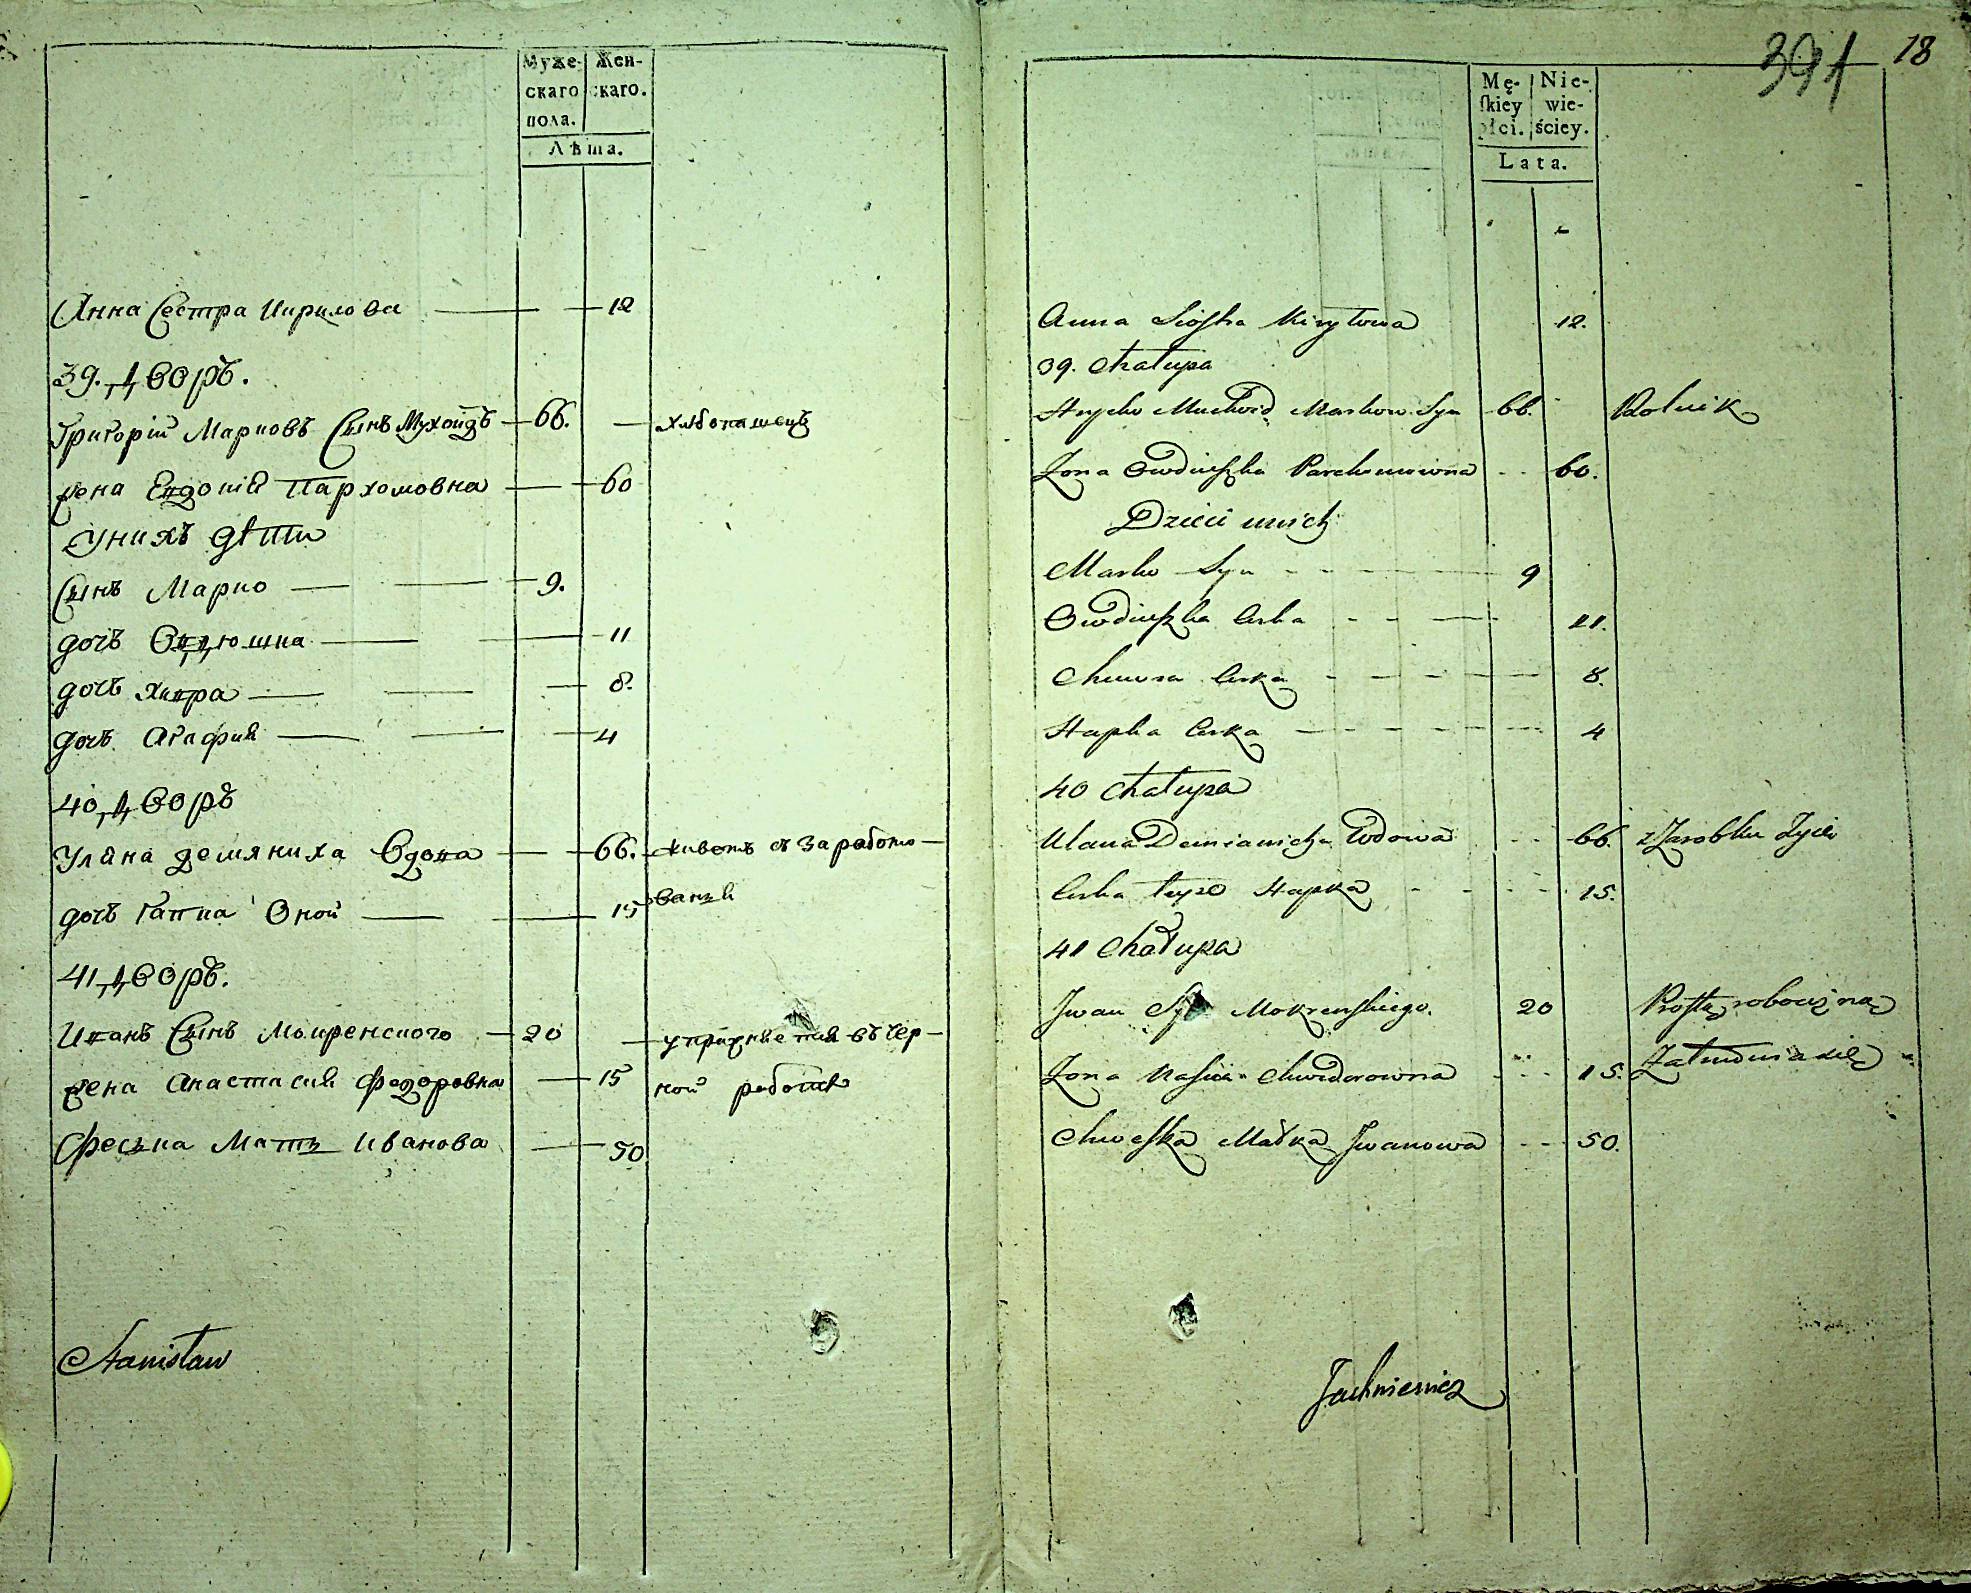 Муже-
скаго
пола.
Жен-
скаго.
Лѣта.
Анна Сестра Кирилова 12
39. дворъ.
Григорій Марковъ Сынъ Мухоидъ 66. хлѣбопашецъ
жена Евдокія Пархомовна 60
у нихъ дѣти
Сынъ Марко 9.
дочъ Овдюшка 11
дочъ Хивра 8.
дочъ Агафия 4
40, дворъ
Уляна демяниха Вдова 66. живетъ съ заработо-
дочъ Гапка Оной 15 ванья
41, дворъ.
Иванъ Сынъ Мокренского 20 упражняется въ чер-
жена Анастасия Федоровна 15 ной работѣ
Феська Мать Иванова 50
Stanisław
391 18
Mę-
skiey
płci.
Nie-
wie-
ściey.
Lata.
Anna Siostra Kiryłowa 12.
39. Chałupa
Hryćko Muchoid Markow Syn 66. Rolnik
Zona Owdiuszka Parchomowna 60.
Dzieci u nich
Marko Syn 9
Owdiuszka Curka 11.
Chiwra Curka 8.
Hapka Curka 4
40 Chałupa
Ulana Demianicha Wdowa 66. z Zarobku Żyie
Curka teyże Hapka 15.
41 Chałupa
Iwan Syn Mokrenskiego. 20 Prostą robocizną
Zona Nascia Chwedorowna 15. Zatrudnia się
Chweska Matka Iwanowa 50.
Jachniewicz